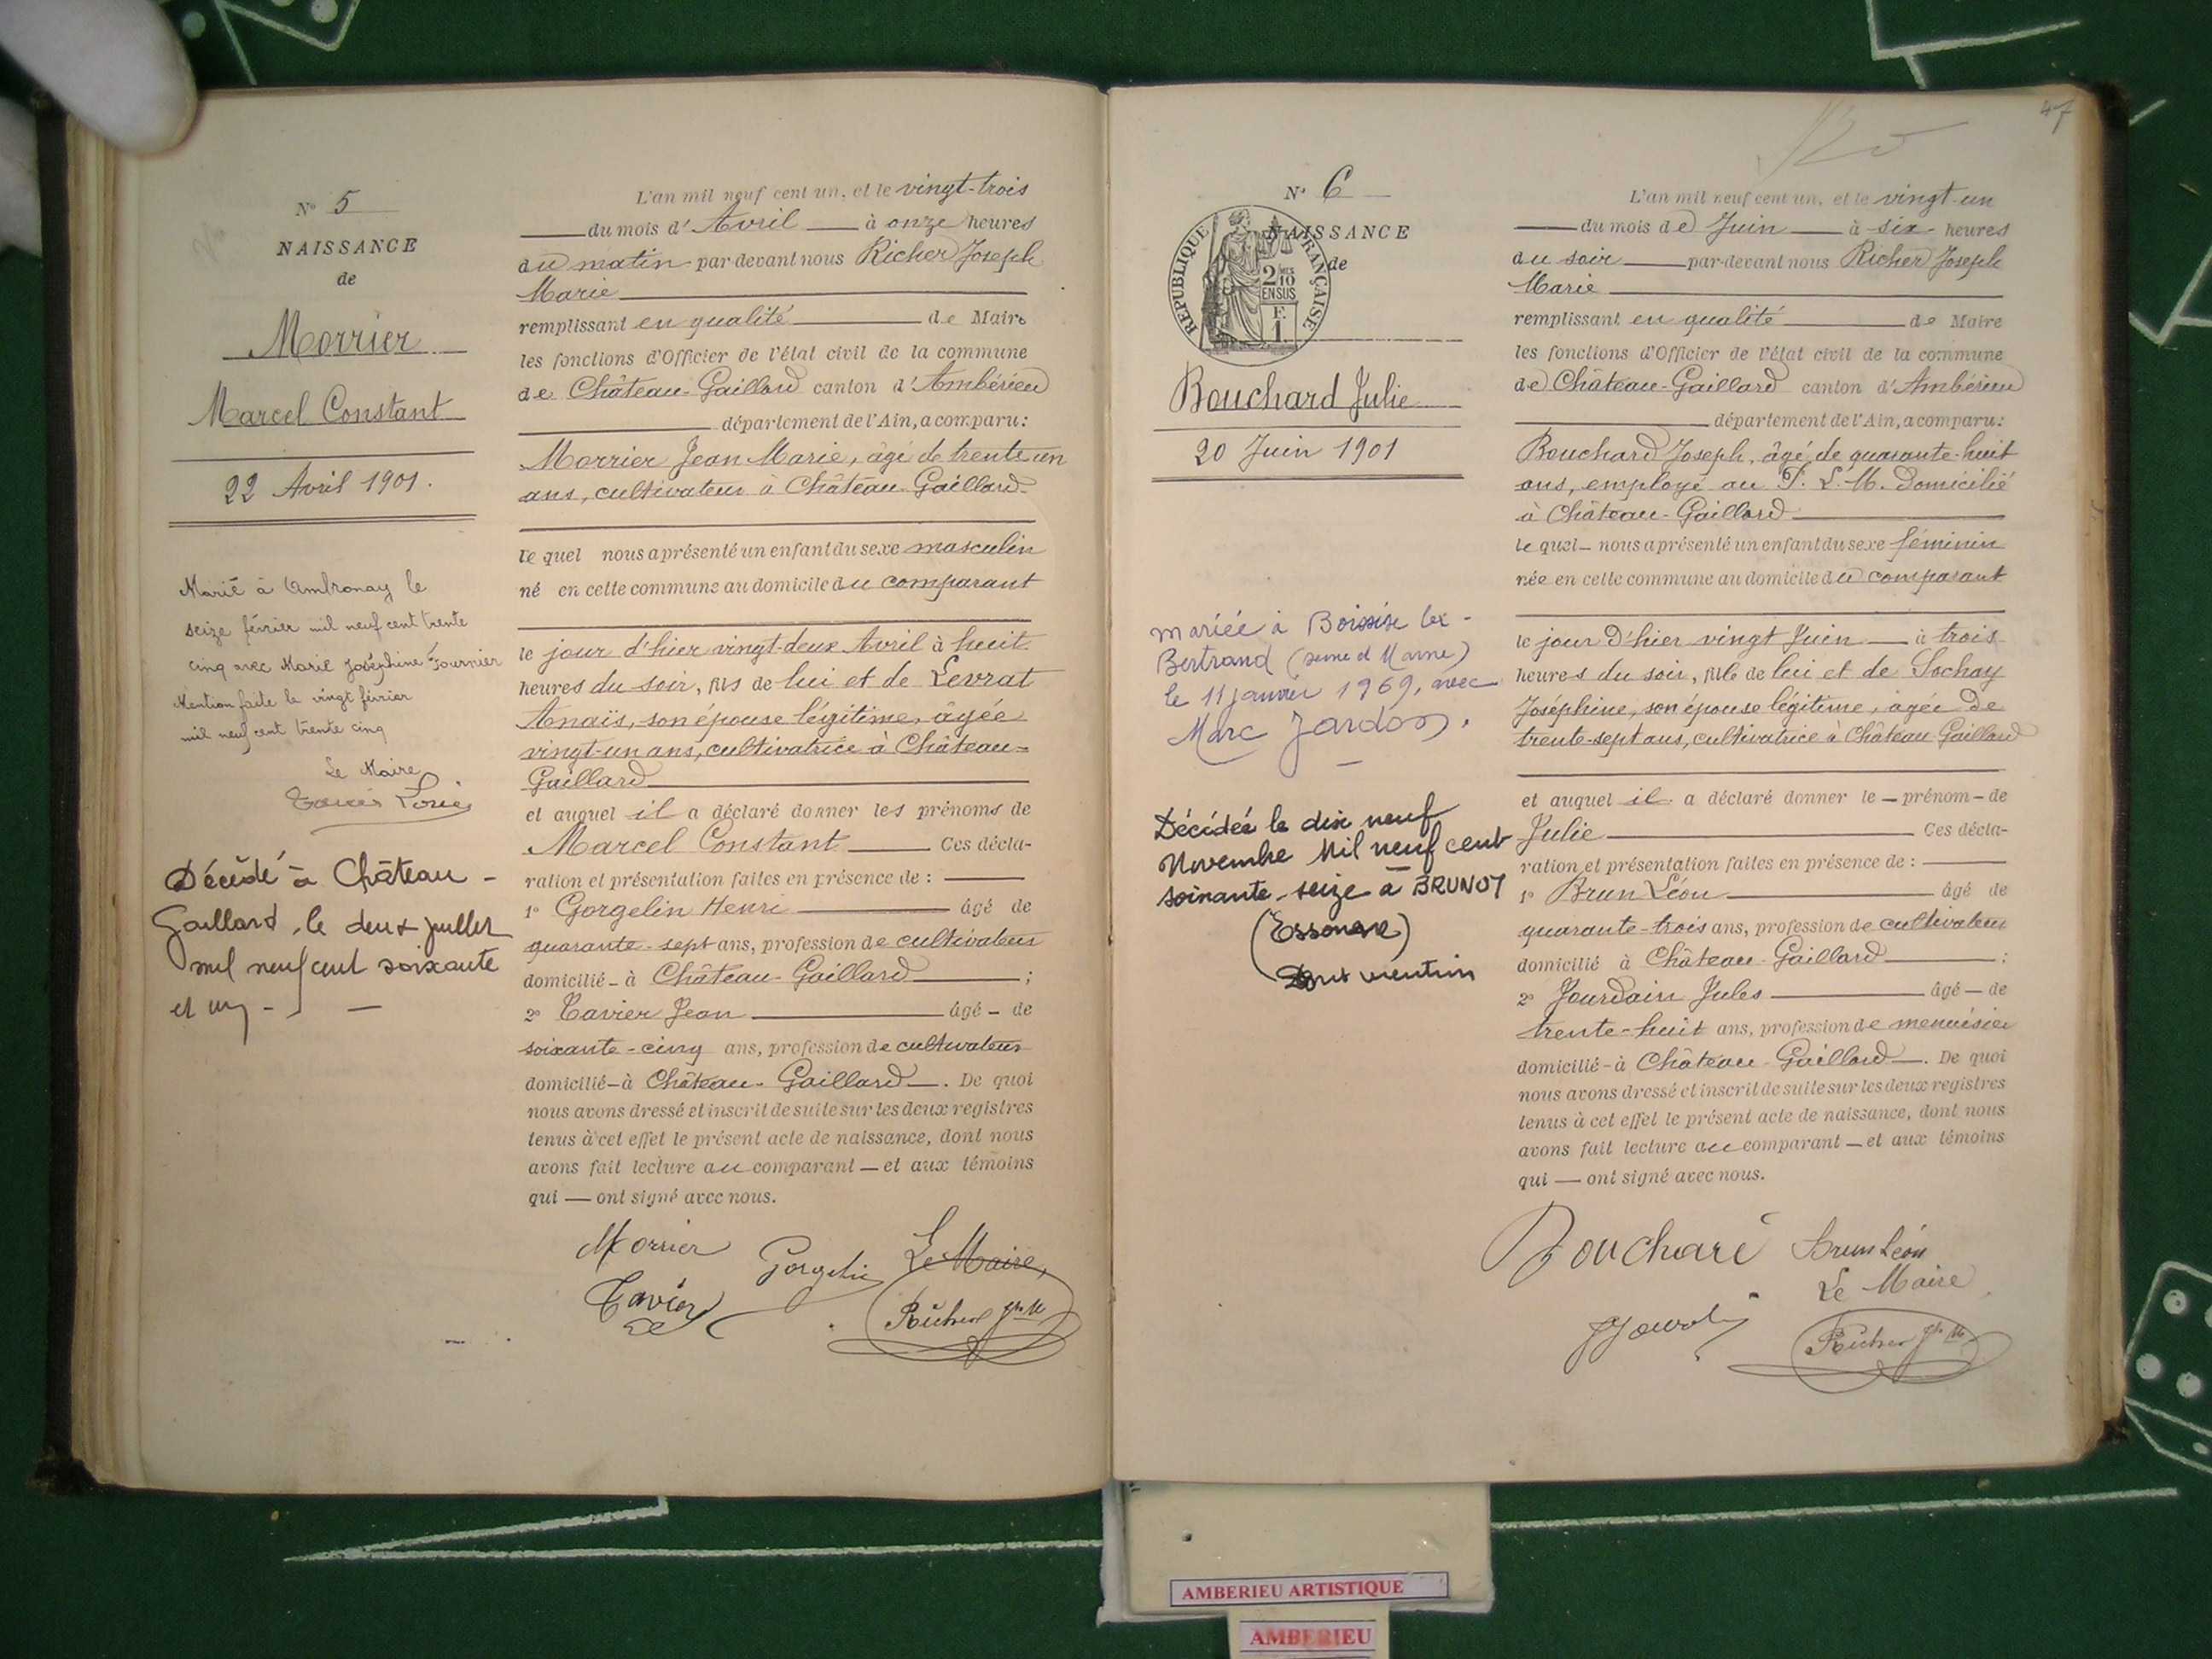 N° 5
NAISSANCE
de
Morrier
Marcel Constant
22 Avril 1901.
Marié à Ambronay le
seize février mil neuf cent trente
cinq avec Marie Joséphine Fournier
Mention faite le vingt février
mil neuf cent trente cinq
Le Maire
Décédé à Château-
Gaillard, le deux juillet
mil neuf cent soixante
et un -
L'an mil neuf cent un, et le vingt-trois
du mois d'Avril à onze heures
du matin par-devant nous Richer Joseph
Marie
remplissant en qualité de Maire
les fonctions d'Officier de l'état civil de la commune
de Château-Gaillard canton d'Ambérieu
département de l'Ain, a comparu:
Morrier Jean Marie, âgé de trente un
ans, cultivateur à Château-Gaillard
le quel nous a présenté un enfant du sexe masculin
né en cette commune au domicile du comparant
le jour d'hier vingt-deux Avril à huit
heures du soir, fils de lui et de Levrat
Anaïs, son épouse légitime, âgée
vingt-un ans, cultivatrice à Château=
Gaillard
et auquel il a déclaré donner les prénoms de
Marcel Constant Ces décla-
ration et présentation faites en présence de :
1° Gorgelin Henri âgé de
quarante-sept ans, profession de cultivateur
domicilié à Château-Gaillard ;
2° Tavier Jean âgé de
soixante-cinq ans, profession de cultivateur
domicilié à Château-Gaillard. De quoi
nous avons dressé et inscrit de suite sur les deux registres
tenus à cet effet le présent acte de naissance, dont nous
avons fait lecture au comparant et aux témoins
qui ont signé avec nous.
Morrier Gorgelin Le Maire,
Tavier Richer Jph M
47
N° 6
NAISSANCE
de
RÉPUBLIQUE FRANÇAISE
2/10 EN SUS
F. 1
Bouchard Julie
20 Juin 1901
mariée à Boissise la-
Bertrand (Seine et Marne)
le 11 janvier 1969, avec
Marc Jardon.
Décédée le dix neuf
Novembre Mil neuf cent
soixante-seize à BRUNOY
(Essonne)
Dont mention
L'an mil neuf cent un, et le vingt-un
du mois de Juin à six heures
du soir par-devant nous Richer Joseph
Marie
remplissant en qualité de Maire
les fonctions d'Officier de l'état civil de la commune
de Château-Gaillard canton d'Ambérieu
département de l'Ain, a comparu:
Bouchard Joseph, âgé de quarante-huit
ans, employé au P. L. M. domicilié
à Château-Gaillard
le quel nous a présenté un enfant du sexe féminin
née en cette commune au domicile du comparant
le jour d'hier vingt Juin à trois
heures du soir, fille de lui et de Sochay
Joséphine, son épouse légitime, âgée de
trente-sept ans, cultivatrice à Château-Gaillard
et auquel il a déclaré donner le prénom de
Julie Ces décla-
ration et présentation faites en présence de :
1° Brun Léon âgé de
quarante-trois ans, profession de cultivateur
domicilié à Château-Gaillard ;
2° Jourdain Jules âgé de
trente-huit ans, profession de menuisier
domicilié à Château-Gaillard. De quoi
nous avons dressé et inscrit de suite sur les deux registres
tenus à cet effet le présent acte de naissance, dont nous
avons fait lecture au comparant et aux témoins
qui ont signé avec nous.
Bouchard Brun Léon
Le Maire
Richer Jph M
AMBERIEU ARTISTIQUE
AMBERIEU